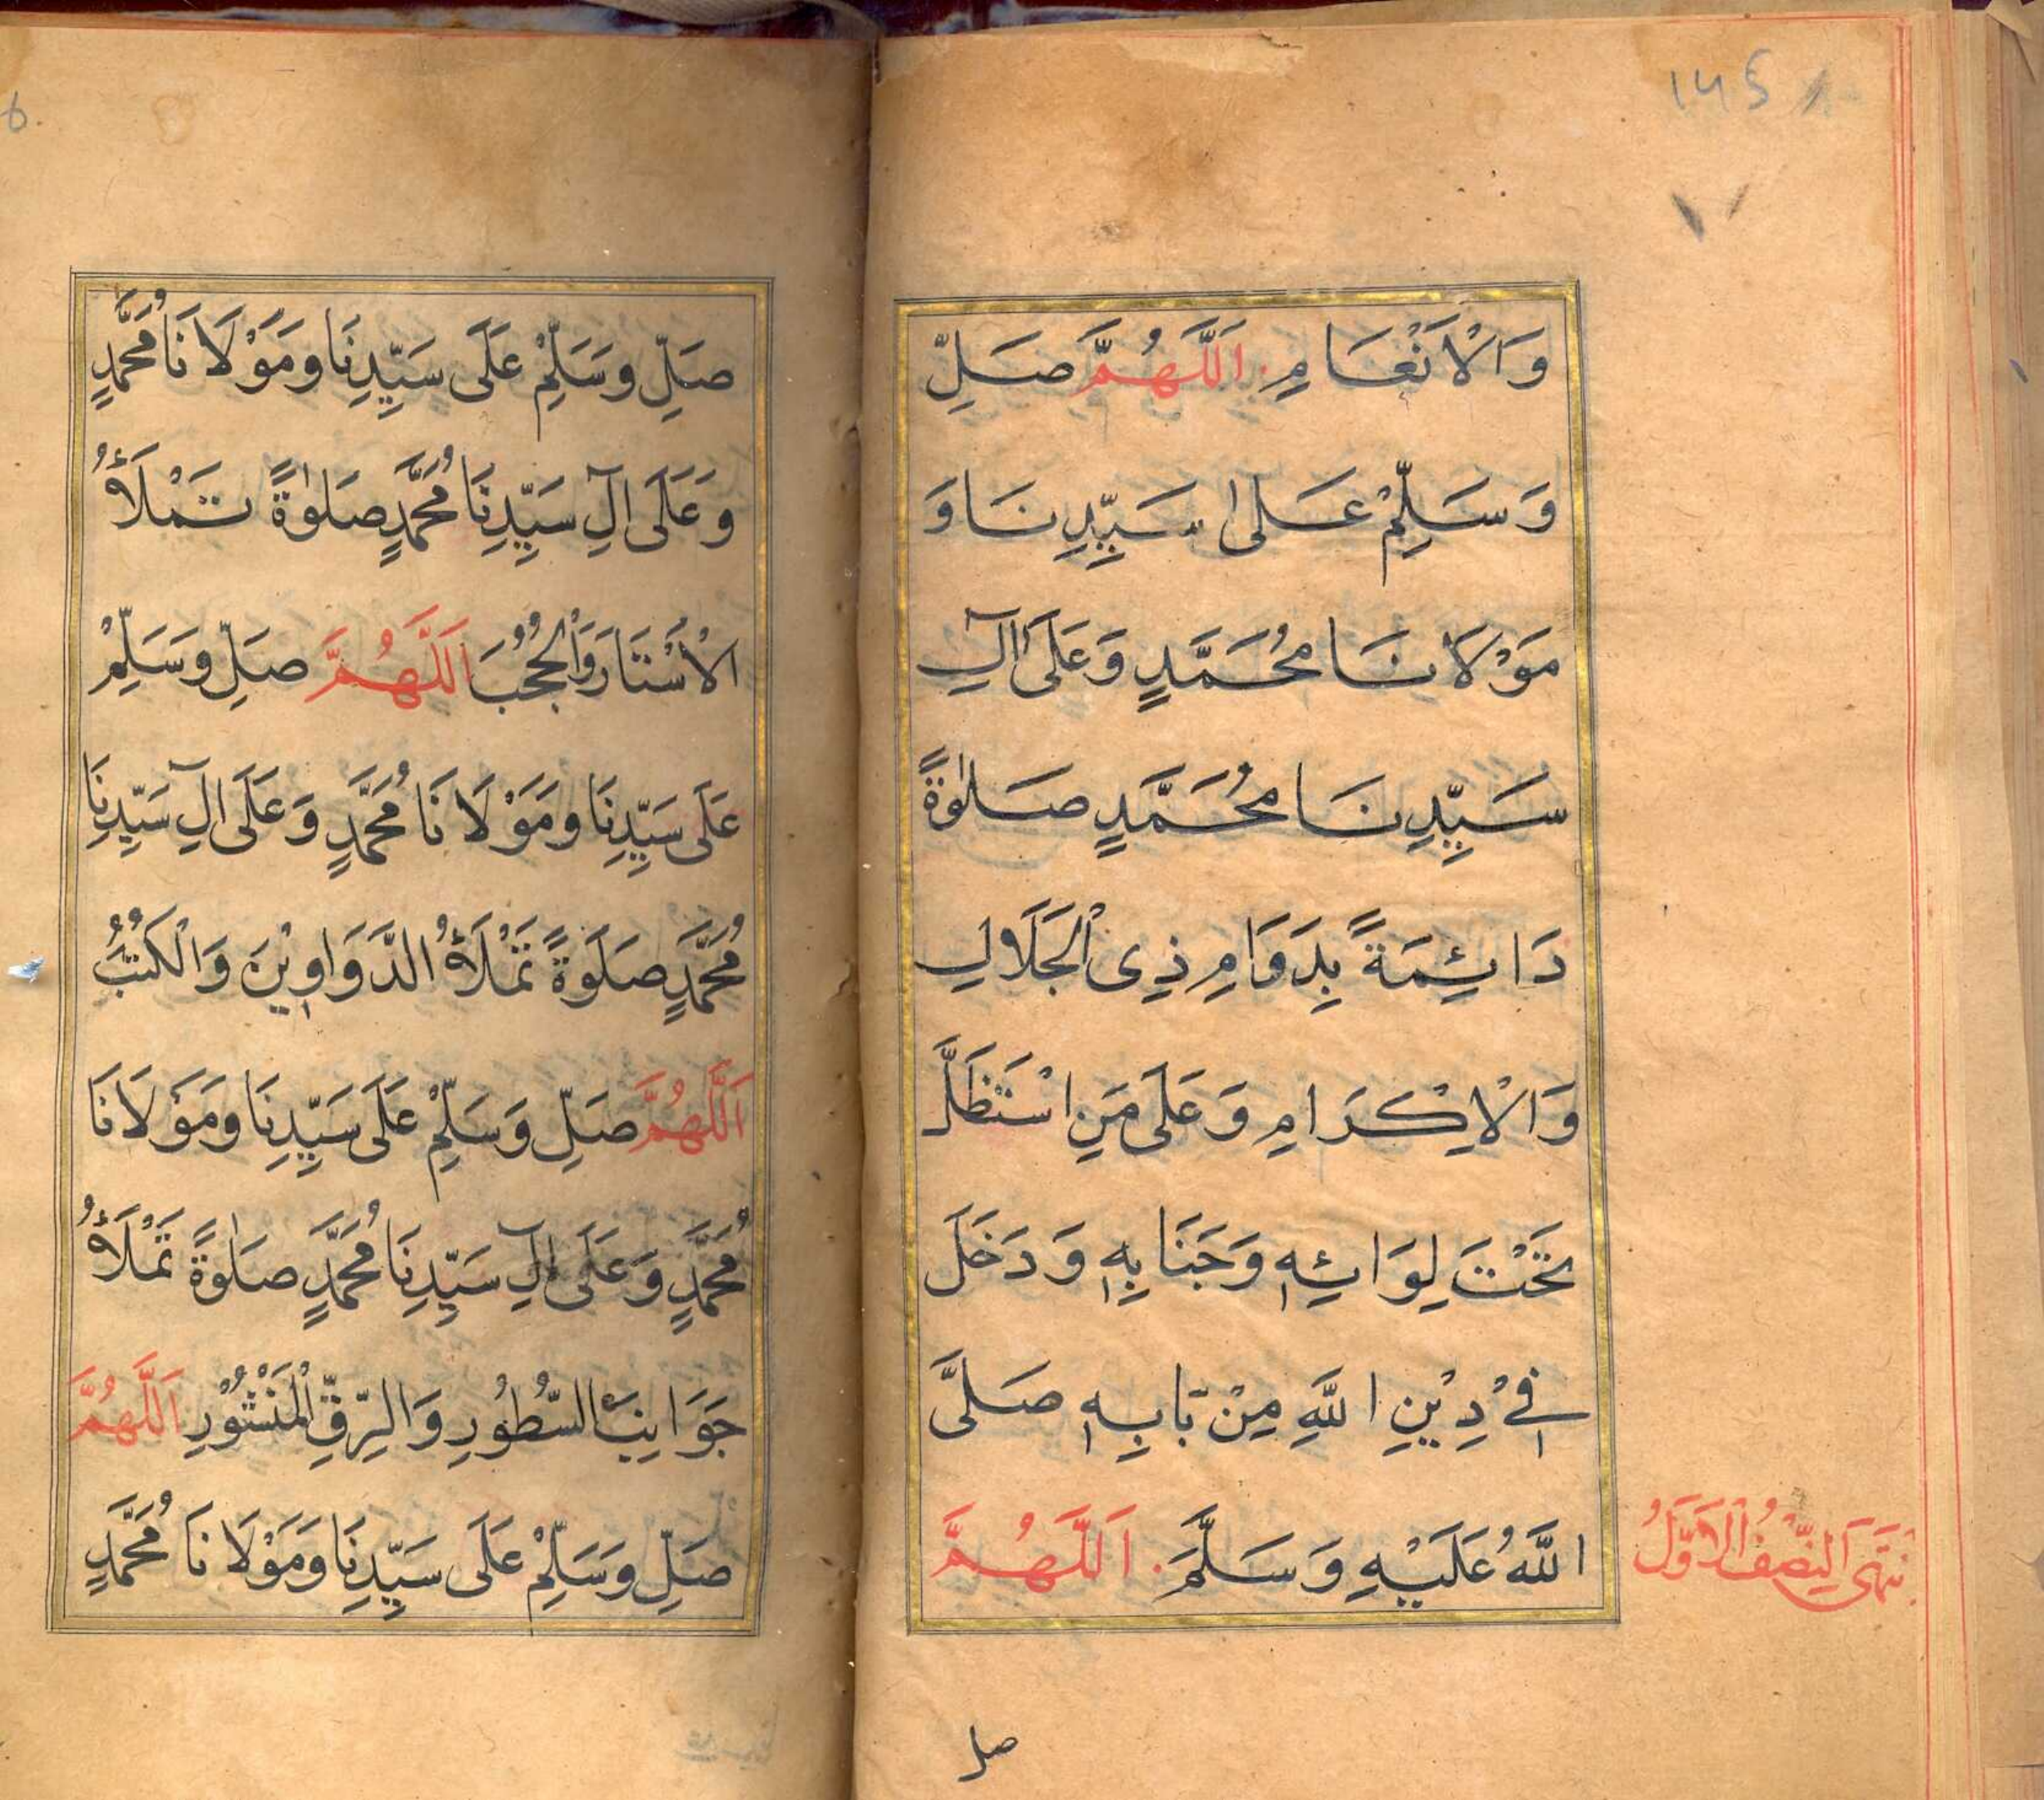 145
وَالْاَنْعَامِ. اَللّٰهُمَّ صَلِّ
وَسَلِّمْ عَلٰى سَيِّدِنَا وَ
مَوْلَانَا مُحَمَّدٍ وَعَلَى اٰلِ
سَيِّدِنَا مُحَمَّدٍ صَلٰوةً
دَائِمَةً بِدَوَامِ ذِى الْجَلَالِ
وَالْاِكْرَامِ وَعَلَى مَنِ اسْتَظَلَّ
تَحْتَ لِوَائِهٖ وَجَنَابِهٖ وَدَخَلَ
فِيْ دِيْنِ اللّٰهِ مِنْ بَابِهٖ صَلَّى
اللّٰهُ عَلَيْهِ وَسَلَّمَ. اَللّٰهُمَّ
نتَهَى النِّصْفُ الْاَوَّلُ
صل
6
صَلِّ وسَلِّمْ عَلَى سَيِّدِنَا ومَوْلَانَا مُحَمَّدٍ
وعَلَى اٰلِ سَيِّدِنَا مُحَمَّدٍ صَلٰوةً تَمْلَأُ
الْاَسْتَارَ وَالْحُجُبَ اَللّٰهُمَّ صَلِّ وسَلِّمْ
عَلَى سَيِّدِنَا ومَوْلَانَا مُحَمَّدٍ وَعَلَى اٰلِ سَيِّدِنَا
مُحَمَّدٍ صَلَوةً تَمْلَأُ الدَّوَاوِيْنَ وَالْكُتُبَ
اَللّٰهُمَّ صَلِّ وَسَلِّمْ عَلَى سَيِّدِنَا ومَوْلَانَا
مُحَمَّدٍ وَعَلَى اٰلِ سَيِّدِنَا مُحَمَّدٍ صَلٰوةً تَمْلَأُ
جَوَانِبَ السُّطُورِ وَالرِّقِّ الْمَنْشُوْرِ اَللّٰهُمَّ
صَلِّ وسَلِّمْ عَلَى سَيِّدِنَا ومَوْلَانَا مُحَمَّدٍ